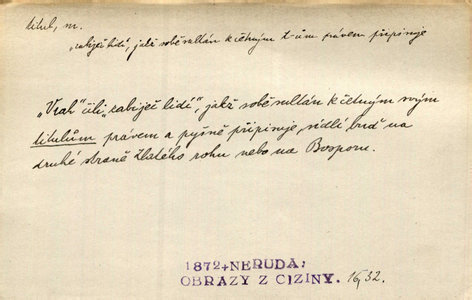 titul, m.
"zabiječ lidí", jakž sobě sultán k četným t-ům právem připisuje
"Vrah" čili "zabiječ lidí", jakž sobě sultán k četným svým
titulům právem a pyšně připisuje, sídlí buď na
druhé straně Zlatého rohu nebo na Bosporu.
1872+NERUDA:
OBRAZY Z CIZINY. 16, 32.